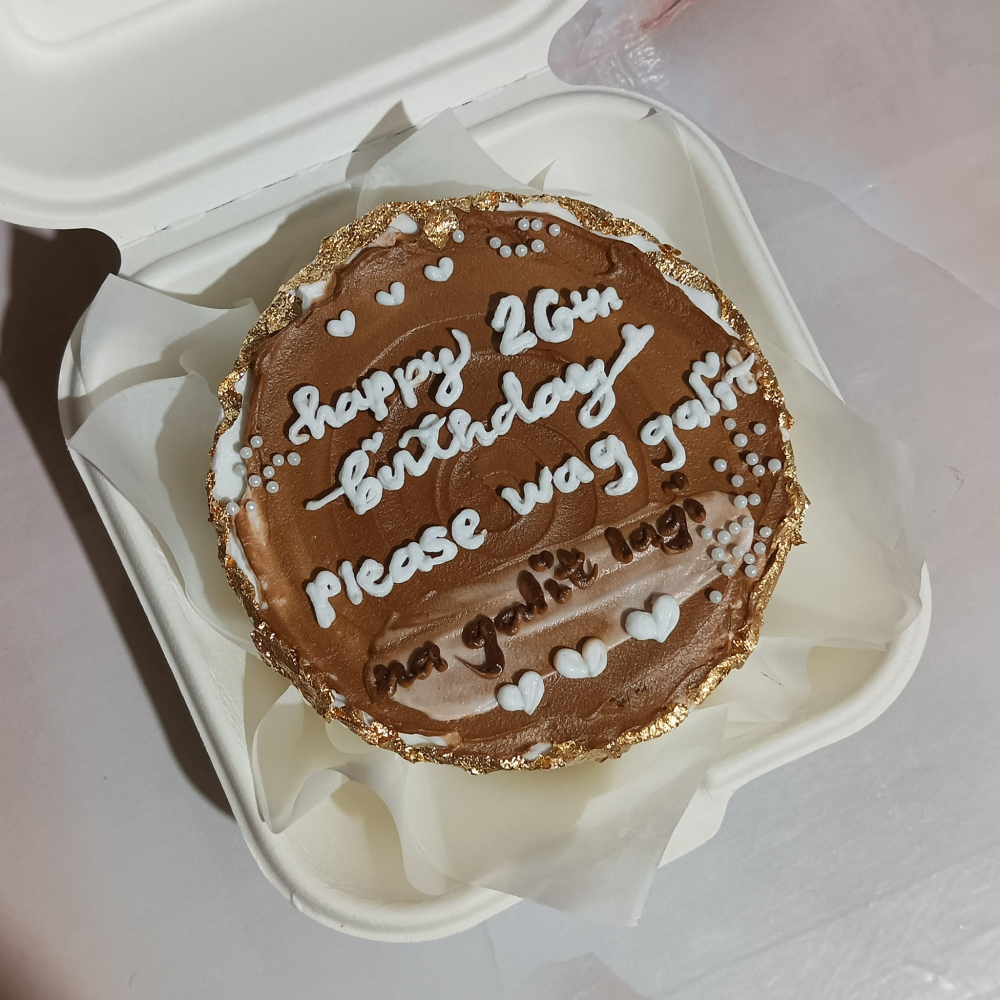 happy 26th
birthday
please wag galit
na galit lagi